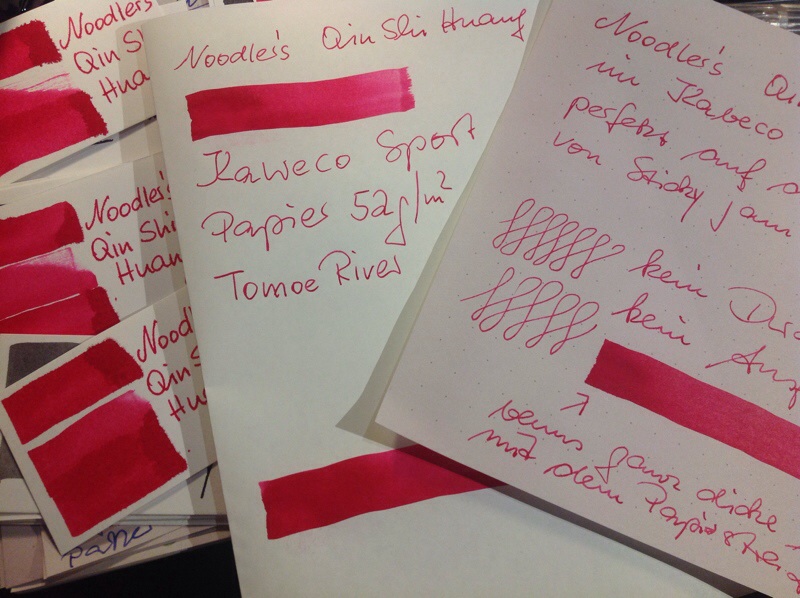 Noodler's
Qin Shi
Huang
Noodler's
Qin Shi
Huang
Noodle
Qin S
Hu
Noodler's Qin Shi Huang
Kaweco Sport
Papier 52g/m²
Tomoe River
Noodler's Qin
im Kaweco
perfekt auf d
von Sticky Jam
kein Durc
kein Ausf
↗
wenns ganz dicke
mit dem Papierstrei